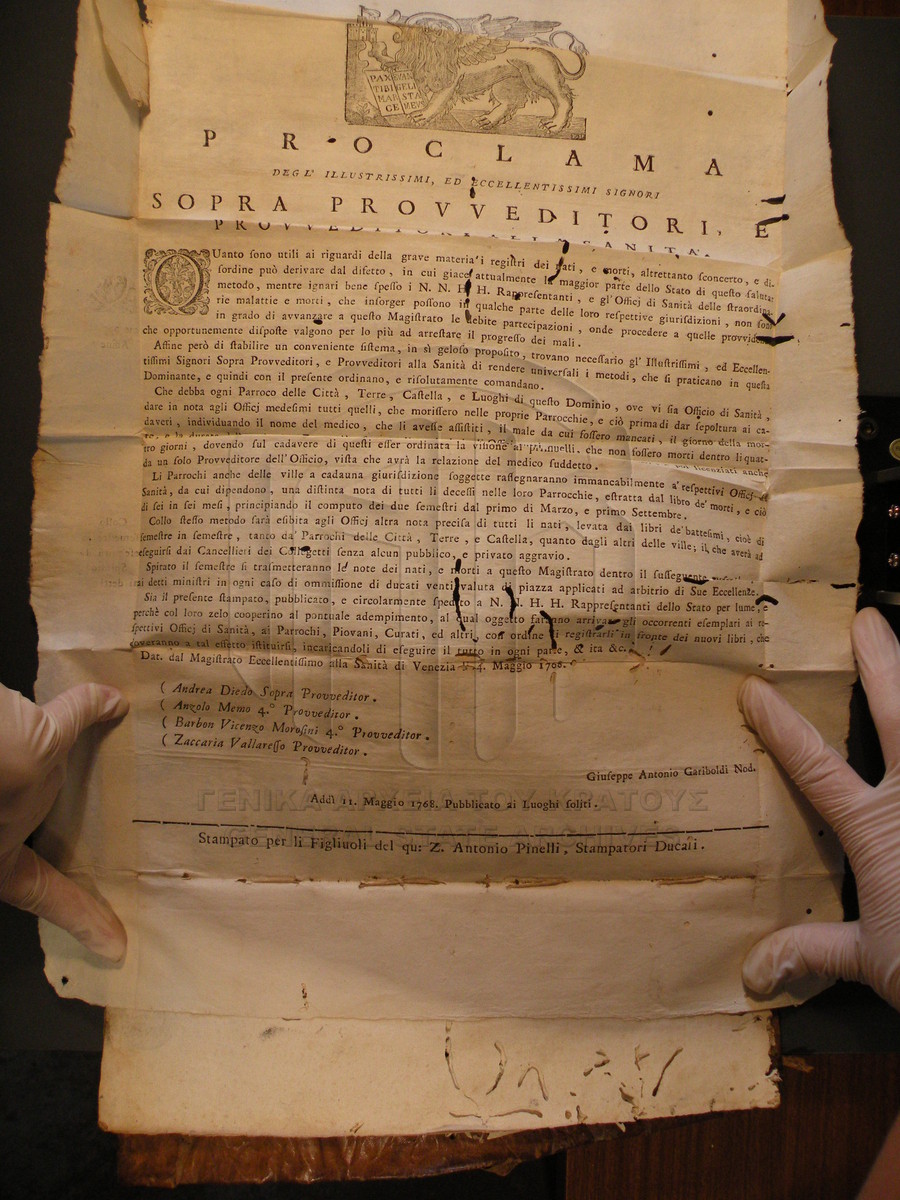 PAX TIBI MAR CE
EVAN GELI STA MEVS
PROCLAMA
DEGL' ILLUSTRISSIMI, ED ECCELLENTISSIMI SIGNORI
SOPRA PROVVEDITORI, E
PROVVEDITORI ALLA SANITA'.
QUanto sono utili ai riguardi della grave materia i registri dei nati, e morti, altrettanto sconcerto, e di-
sordine può derivare dal difetto, in cui giace attualmente la maggior parte dello Stato di questo saluta-
metodo, mentre ignari bene spesso i N. N. H. H. Rappresentanti, e gl' Officj di Sanità delle straordina-
rie malattie e morti, che insorger possono in qualche parte delle loro respettive giurisdizioni, non sono
in grado di avvanzare a questo Magistrato le debite partecipazioni, onde procedere a quelle provvidenze
che opportunemente disposte valgono per lo più ad arrestare il progresso dei mali.
Affine però di stabilire un conveniente sistema, in sì geloso proposito, trovano necessario gl' Illustrissimi, ed Eccellen-
tissimi Signori Sopra Proveditori, e Provveditori alla Sanità di rendere universali i metodi, che si praticano in questa
Dominante, e quindi con il presente ordinano, e risolutamente comandano.
Che debba ogni Parroco delle Città, Terre, Castella, e Luoghi di questo Dominio, ove vi sia Officio di Sanità,
dare in nota agli Officj medesimi tutti quelli, che morissero nelle proprie Parrocchie, e ciò prima di dar sepoltura ai ca-
daveri, individuando il nome del medico, che li avesse assistiti, il male da cui fossero mancati, il giorno della mor-
te, e la
tro giorni, dovendo sul cadavere di questi esser ordinata la visione che non fossero morti dentro li quat-
da un solo Provveditore dell' Officio, vista che avrà la relazione del medico suddetto. licenziati anche
Li Parrochi anche delle ville a cadauna giurisdizione soggette rassegnaranno immancabilmente a' respettivi Officj di
Sanità, da cui dipendono, una distinta nota di tutti li decessi nelle loro Parrocchie, estratta dal libro de' morti, e ciò
di sei in sei mesi, principiando il computo dei due semestri dal primo di Marzo, e primo Settembre.
Collo stesso metodo sarà esibita agli Officj altra nota precisa di tutti li nati, levata dai libri de' battesimi, cioè di
semestre in semestre, tanto da' Parrochi delle Città, Terre, e Castella, quanto dagli altri delle ville; il che averà ad
eseguirsi dai Cancellieri dei Colleggetti senza alcun pubblico, e privato aggravio.
Spirato il semestre si trasmetteranno le note dei nati, e morti a questo Magistrato dentro il susseguente
ai detti ministri in ogni caso di ommissione di ducati venti valuta di piazza applicati ad arbitrio di Sue Eccellenze.
Sia il presente stampato, pubblicato, e circolarmente spedito a N. N. H. H. Rappresentanti dello Stato per lume, e
perchè col loro zelo cooperino al pontuale adempimento, al qual oggetto faranno arrivar gli occorrenti esemplari ai re-
spettivi Officj di Sanità, ai Parrochi, Piovani, Curati, ed altri, con ordine di registrarli in fronte dei nuovi libri, che
doveranno a tal effetto istituirsi, incaricandoli di eseguire il tutto in ogni parte, & ita &c.
Dat. dal Magistrato Eccellentissimo alla Sanità di Venezia li 4. Maggio 1768.
( Andrea Diedo Sopra Provveditor.
( Anzolo Memo 4.º Provveditor.
( Barbon Vicenzo Morosini 4.º Provveditor.
( Zaccaria Vallaresso Provveditor.
Giuseppe Antonio Gariboldi Nod.
ΓΕΝΙΚΑ ΑΡΧΕΙΑ ΤΟΥ ΚΡΑΤΟΥΣ
Addì 11. Maggio 1768. Pubblicato ai Luoghi soliti.
GENERAL STATE ARCHIVES
Stampato per li Figliuoli del qu: Z. Antonio Pinelli, Stampatori Ducali.